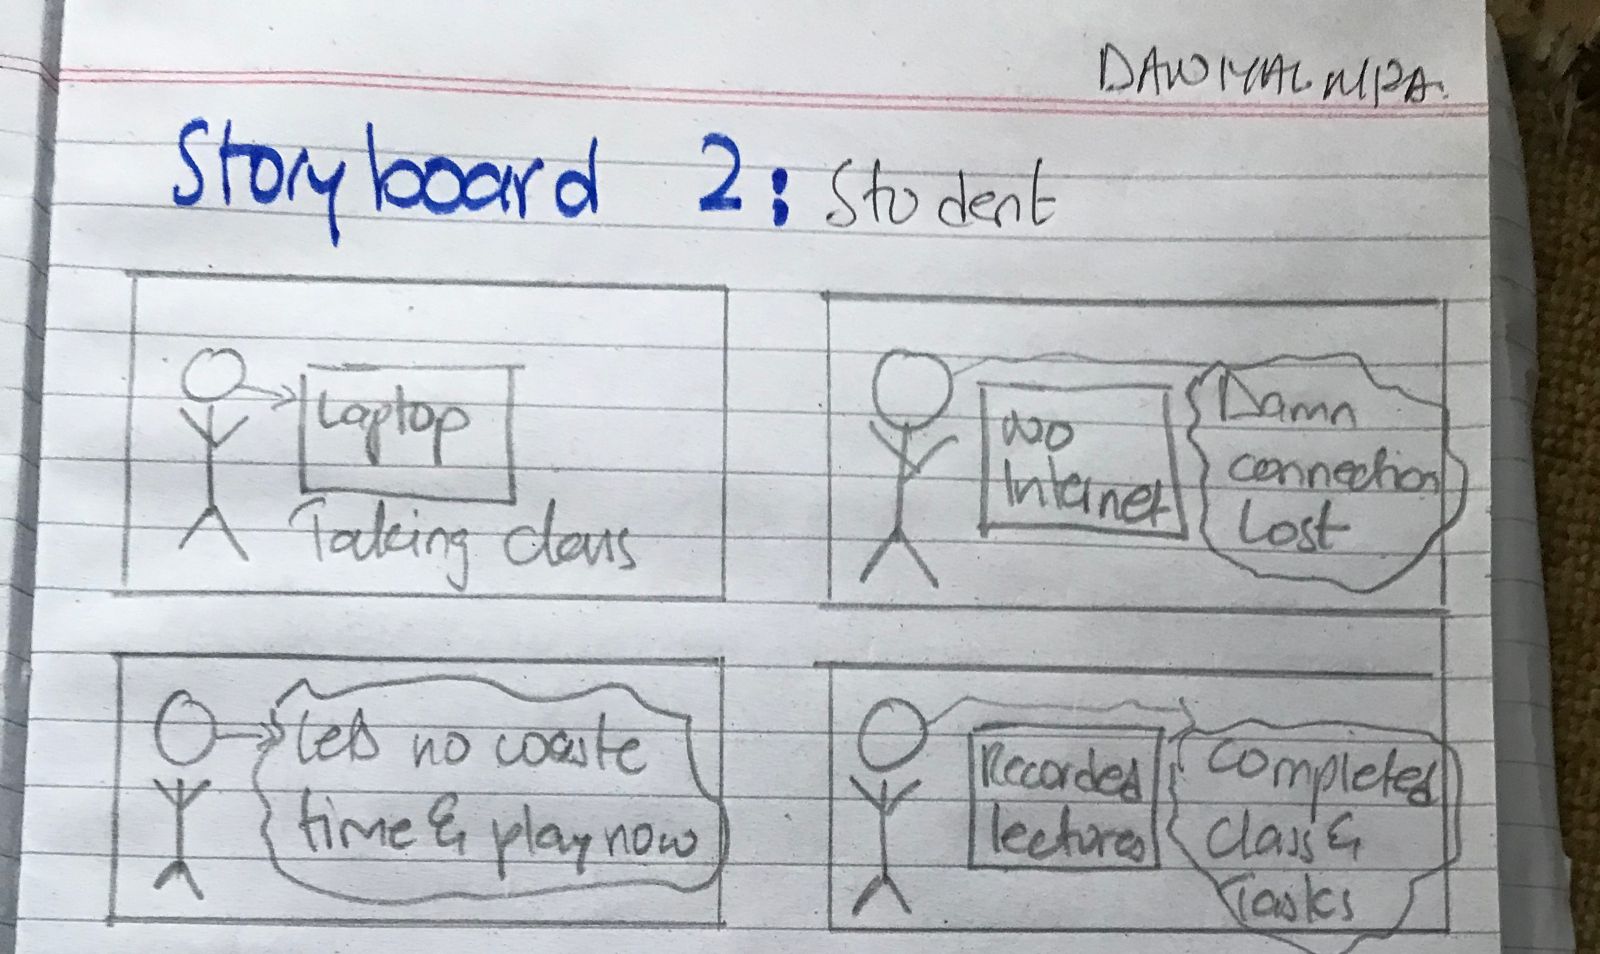 Storyboard 2: Student
Laptop
Taking class
No
Internet
Damn
connection
Lost
Lets no waste
time & play now
Recorded
lectures
Completed
Class &
Tasks